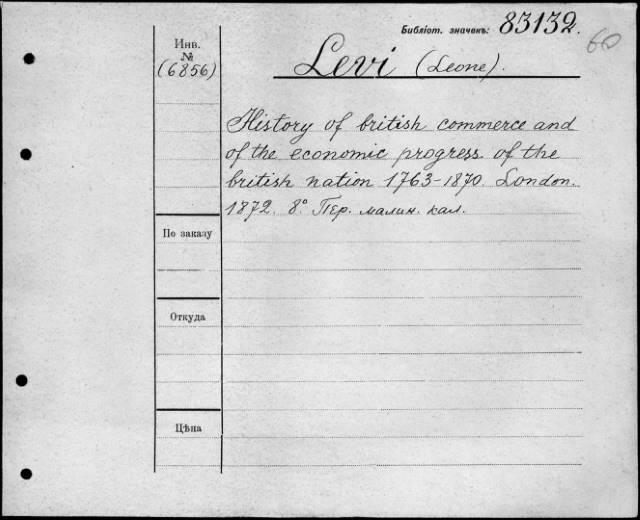 Библіот. значекъ: 83132.
60
Инв.
№
(6856)
Levi (Leone).
History of british commerce and
of the economic progress of the
british nation 1763-1870. London.
1872. 8° Пер. малин. кал.
По заказу
Откуда
Цѣна